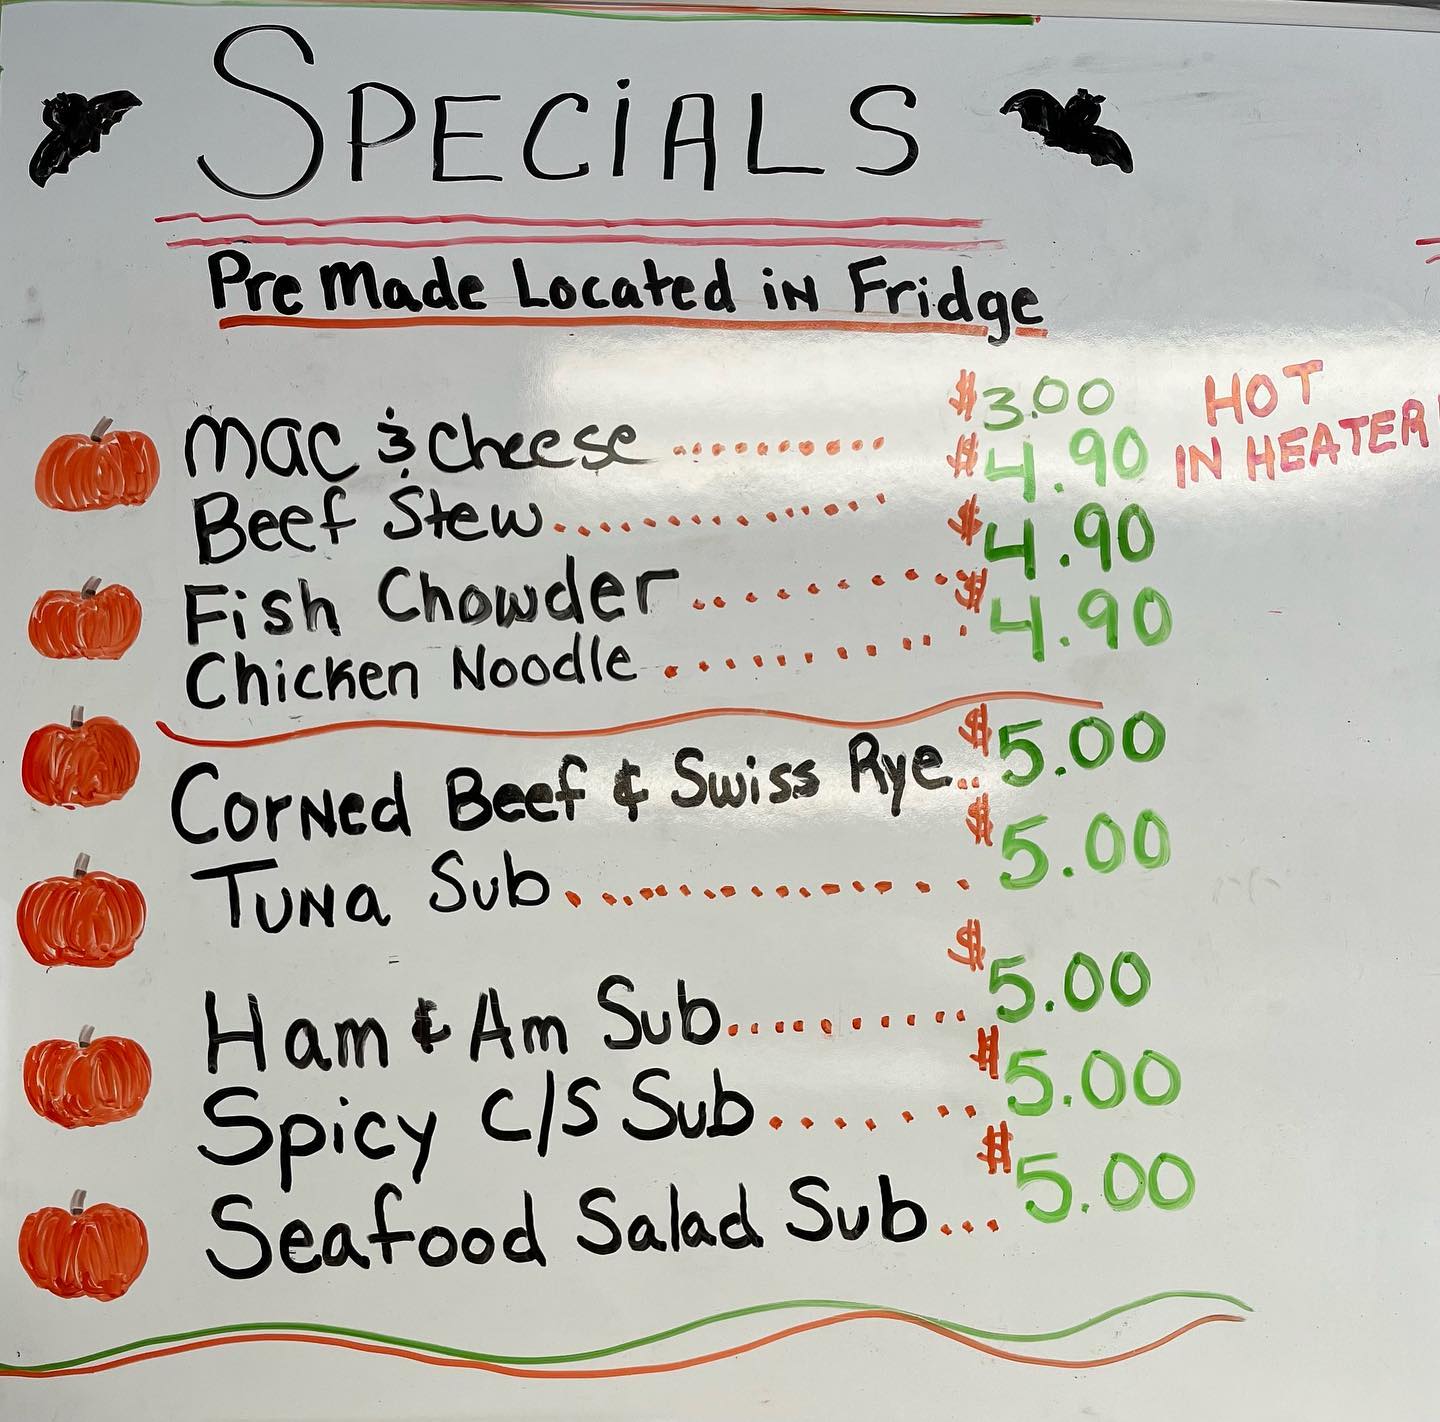 SPECiALS
Pre Made Located iN Fridge
Mac & Cheese .......... $3.00 HOT
Beef Stew.............. $4.90 IN HEATER!
Fish Chowder .......... $4.90
Chicken Noodle .......... $4.90
CorNed Beef & Swiss Rye.. $5.00
TUNa Sub............... $5.00
Ham & Am Sub........... $5.00
Spicy C/S Sub....... $5.00
Seafood Salad Sub... $5.00